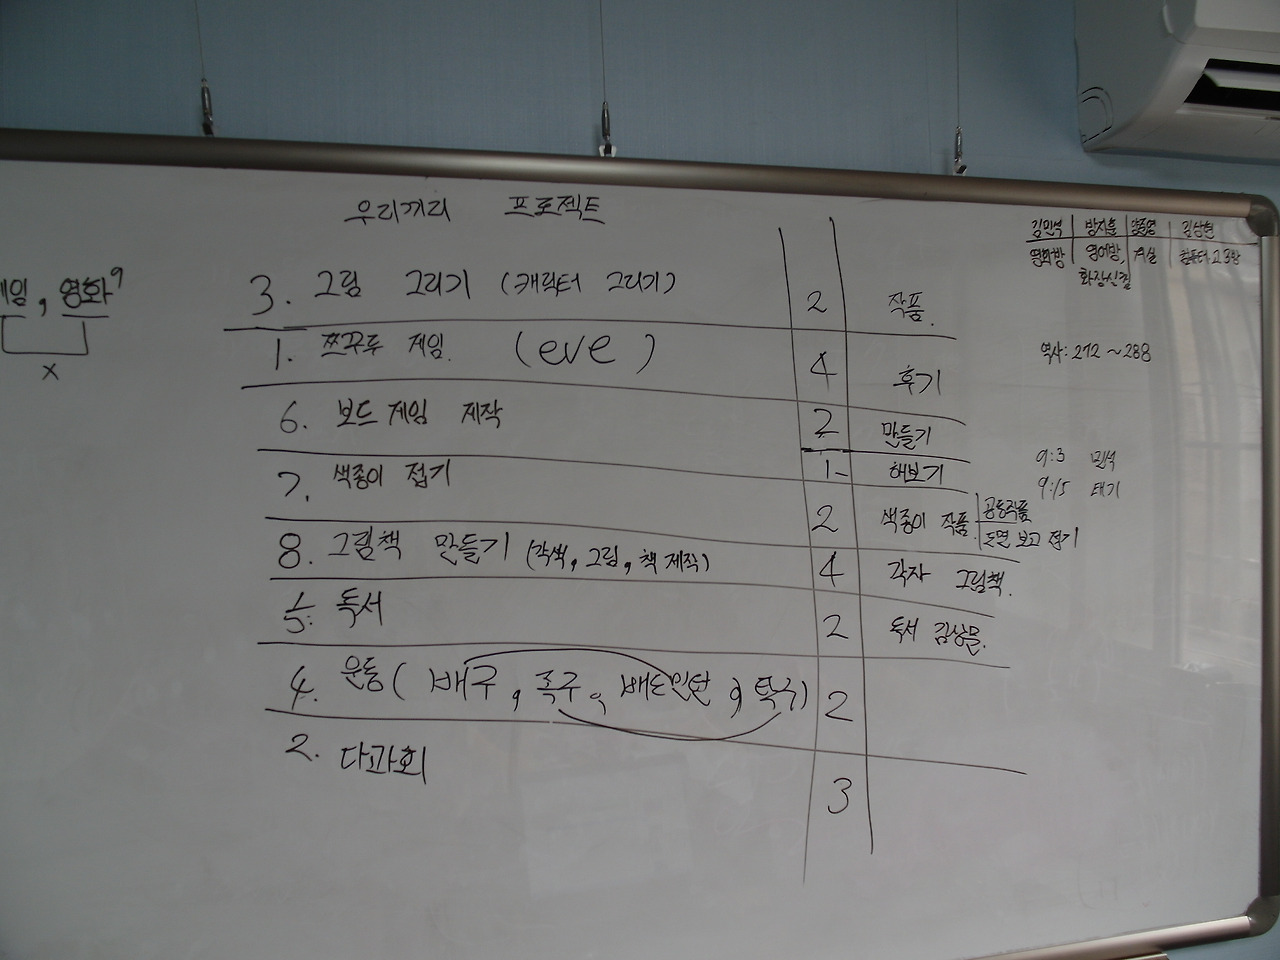 우리끼리 프로젝트
3. 그림 그리기 (캐릭터 그리기) 2 작품.
1. 쯔꾸루 게임. (eve) 4 후기
6. 보드게임 제작 2 만들기
1 해보기
7. 색종이 접기 2 색종이 작품. 공동작품
도면 보고 접기
8. 그림책 만들기 (각색, 그림, 책 제작) 4 각자 그림책.
5. 독서 2 독서 감상문.
4. 운동 ( 배구, 족구, 배드민턴, 탁구) 2
2. 다과회 3
게임, 영화 9
x
김민석 방지훈 김상현
영화방 영어방, 거실 컴퓨터 2 3방
화장실
역사: 212 ~ 288
9:3 민석
9:15 태기